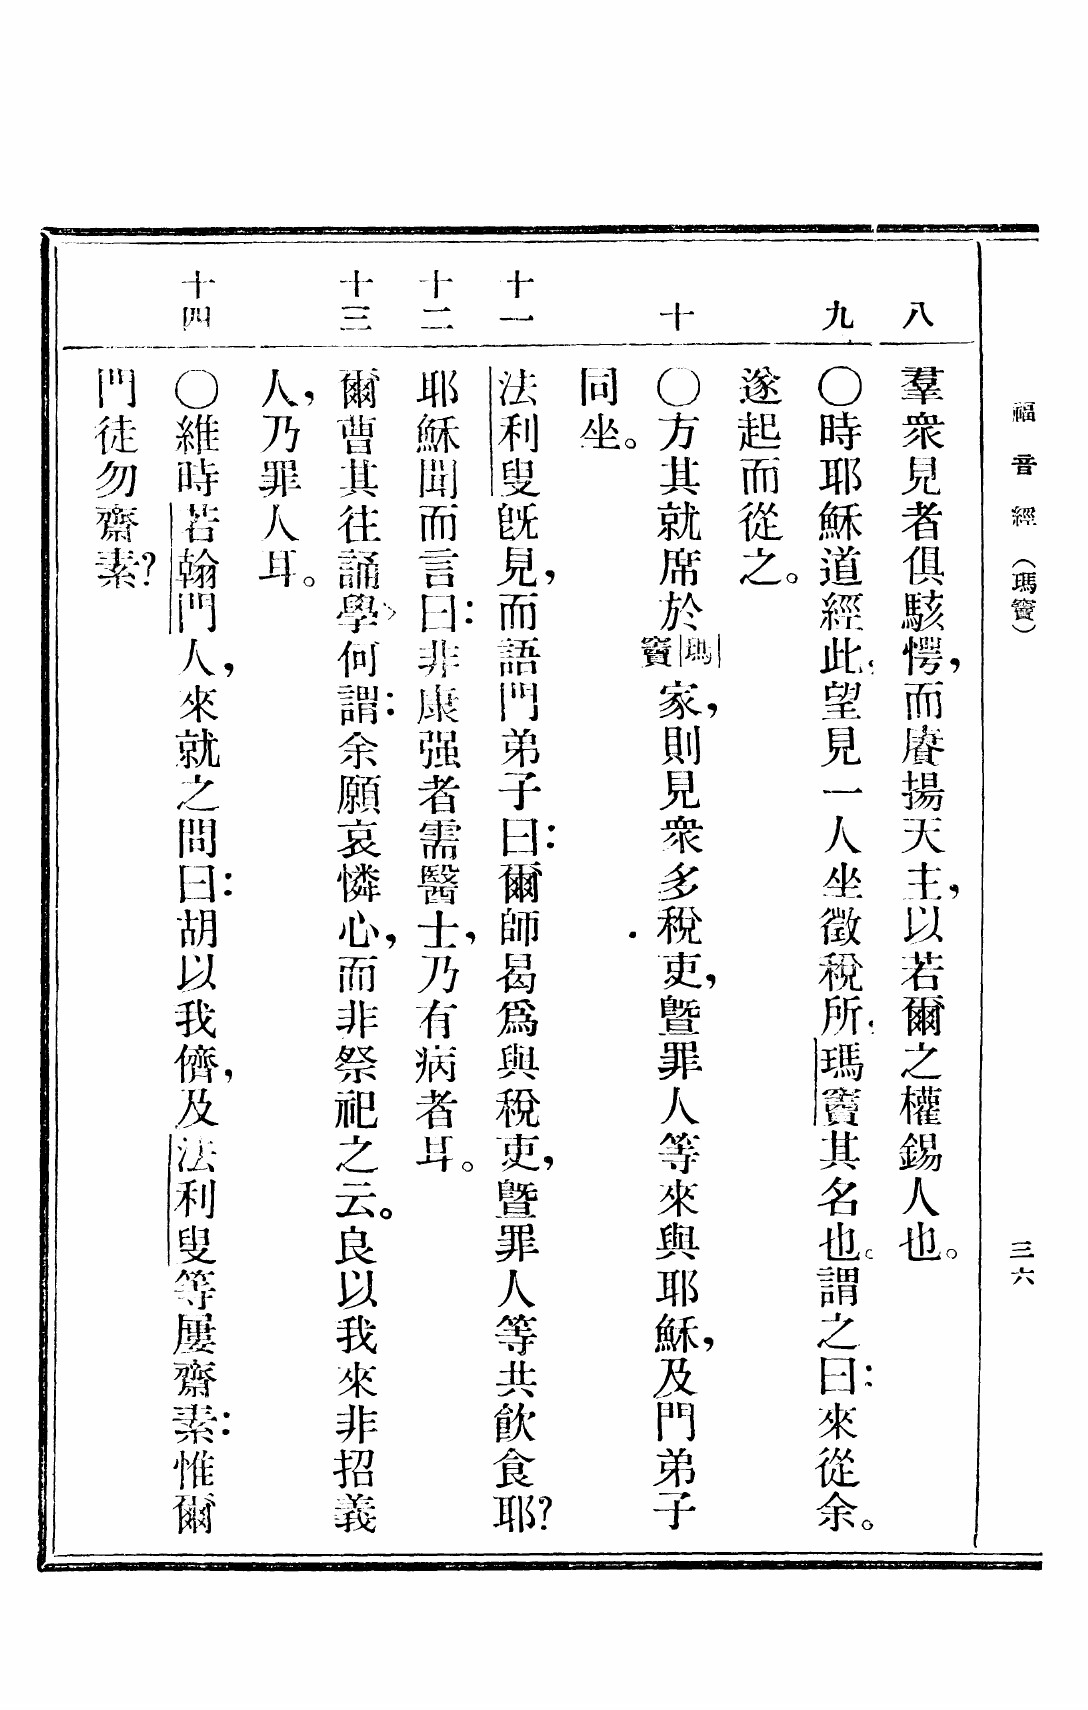 福音經（瑪竇） 三六
八 羣衆見者俱駭愕，而賡揚天主，以若爾之權錫人也。
九 〇時耶穌道經此，望見一人坐徵稅所，瑪竇其名也。謂之曰：來從余。
遂起而從之。
十 〇方其就席於瑪竇家，則見衆多稅吏，曁罪人等來與耶穌，及門弟子
同坐。
十一 法利叟旣見，而語門弟子曰：爾師曷爲與稅吏，曁罪人等共飮食耶？
十二 耶穌聞而言曰：非康强者需醫士，乃有病者耳。
十三 爾曹其往誦學，何謂：余願哀憐心，而非祭祀之云。良以我來非招義
人，乃罪人耳。
十四 〇維時若翰門人，來就之問曰：胡以我儕，及法利叟等屢齋素：惟爾
門徒勿齋素？